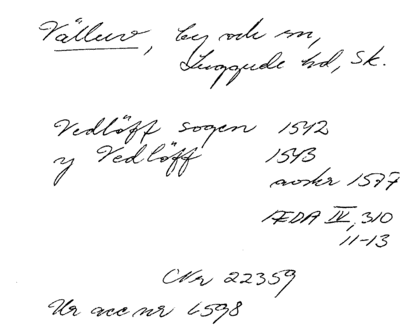 Välluv, by och sn,
Luggude hd, Sk.
Vedlöff sogen 1542
y Vedlöff 1543
avskr 1577
ÆDA IV, 310
11-13
CNr 22359
Ur acc nr 6598